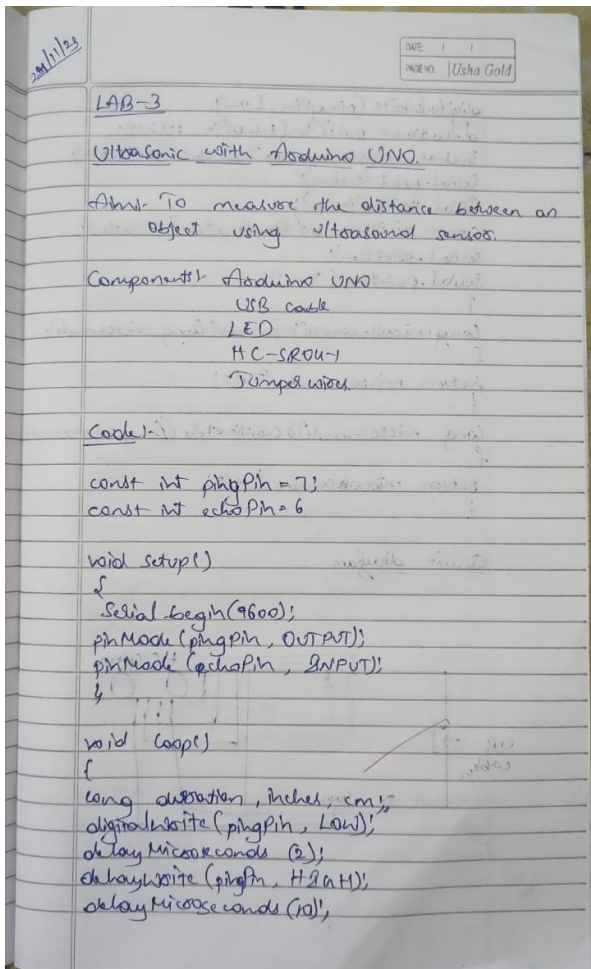 29/11/23
DATE: / /
PAGE NO: Usha Gold
LAB-3
Ultrasonic with Arduino UNO.
Aim:- To measure the distance between an
object using ultrasound sensor.
Components:- Arduino UNO
USB cable
LED
HC-SR04-1
Jumper wires.
Code:-
const int pingPin = 7;
const int echoPin = 6
void setup()
{
Serial.begin(9600);
pinMode(pingPin, OUTPUT);
pinMode(echoPin, INPUT);
}
void loop()
{
long duration, inches, cm;
digitalwrite(pingPin, LOW);
delayMicroseconds (2);
delaywrite (pingPin, HIGH);
delayMicroseconds (10);